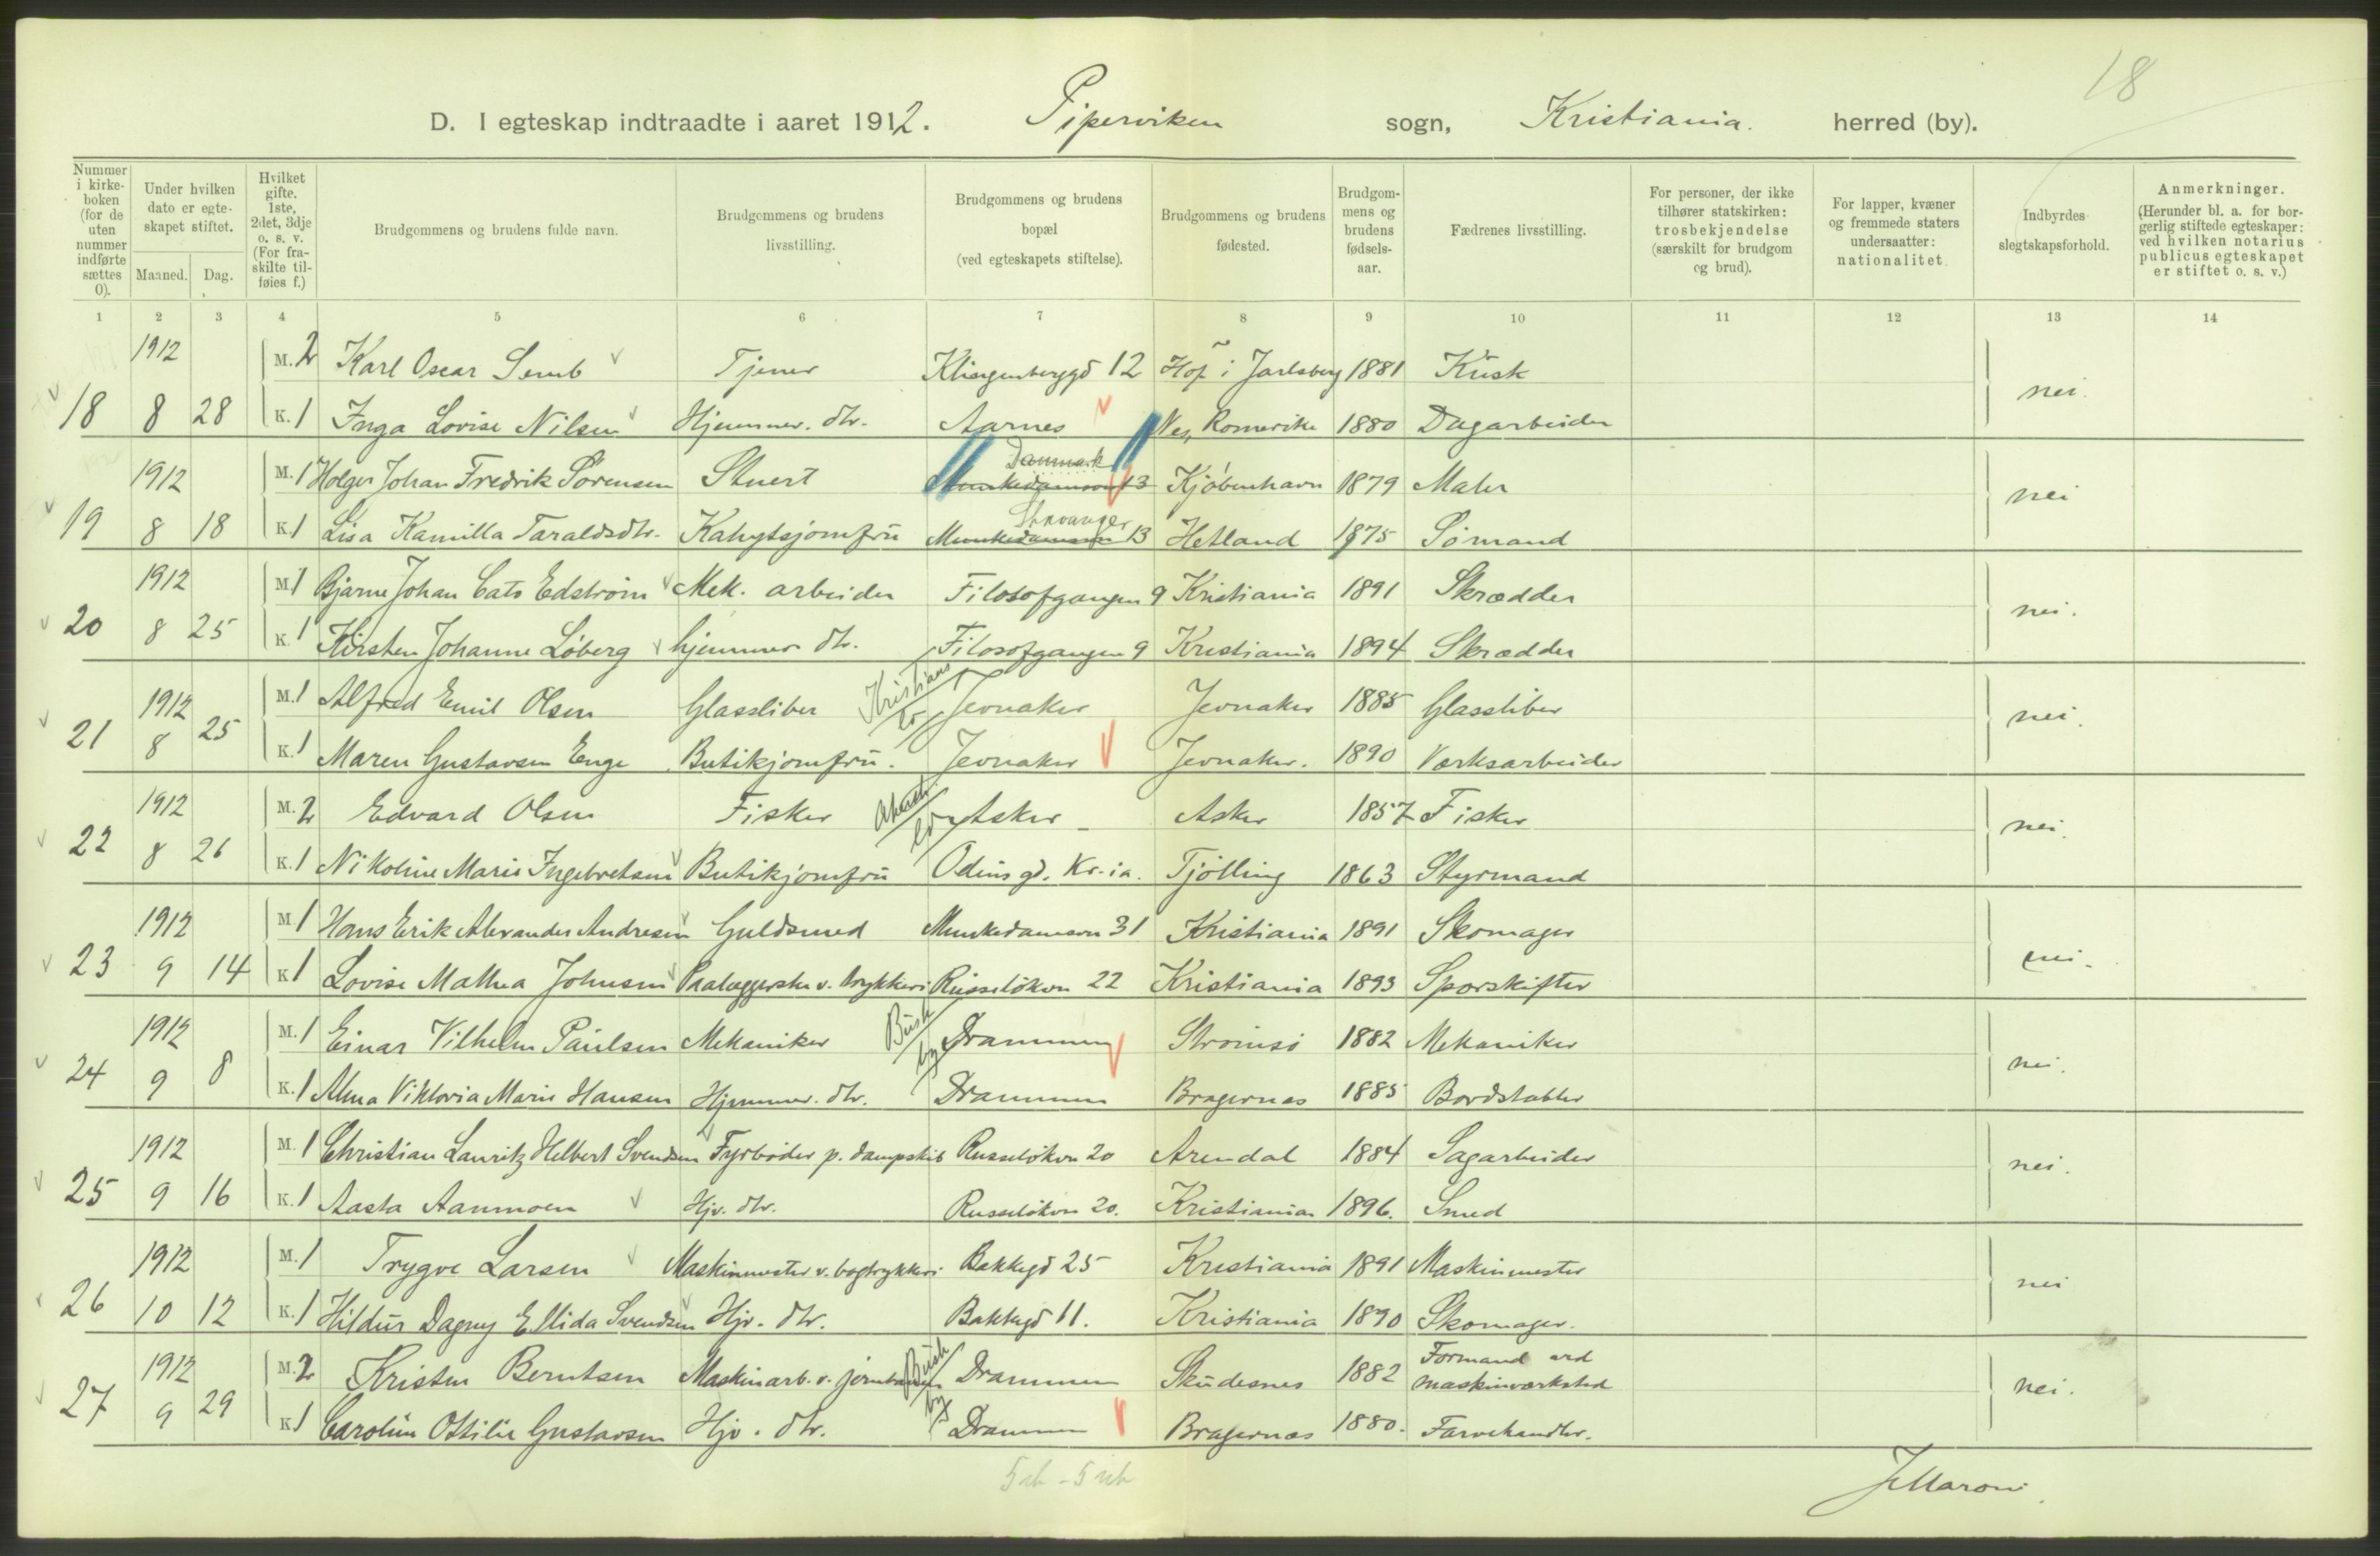 18
D. I egteskap indtraadte i aaret 1912. Piperviken sogn, Kristiania. herred (by).
Nummer i kirkeboken (for de uten nummer indførte sættes 0).
Under hvilken dato er egteskapet stiftet.
Maaned. Dag.
Hvilket gifte. 1ste, 2det, 3dje o. s. v. (For fraskilte tilføies f.)
Brudgommens og brudens fulde navn.
Brudgommens og brudens livsstilling.
Brudgommens og brudens bopæl (ved egteskapets stiftelse).
Brudgommens og brudens fødested.
Brudgommens og brudens fødselsaar.
Fædrenes livsstilling.
For personer, der ikke tilhører statskirken: trosbekjendelse (særskilt for brudgom og brud).
For lapper, kvæner og fremmede staters undersaatter: nationalitet.
Indbyrdes slegtskapsforhold.
Anmerkninger. (Herunder bl. a. for borgerlig stiftede egteskaper: ved hvilken notarius publicus egteskapet er stiftet o. s. v.)
1 2 3 4 5 6 7 8 9 10 11 12 13 14
1912 M. 2 Karl Oscar Semb Tjener Klingenberggd 12 Hof i Jarlsberg 1881 Kusk
18 8 28 K. 1 Inga Lovise Nilsen Hjemmev. dtr. Aarnes Nes, Romerike 1880 Dagarbeider nei.
Danmark
1912 M. 1 Holger Johan Fredrik Sørensen Stuert Munkedamsvn 13 Kjøbenhavn 1879 Maler
Stavanger
19 8 18 K. 1 Lisa Kamilla Taraldsdtr. Kahytsjomfru Munkedamsvn 13 Hetland 1875 Sømand nei
1912 M. 1 Bjarne Johan Cato Edstrøm Mek. arbeider Filosofgangen 9 Kristiania 1891 Skrædder
20 8 25 K. 1 Kirsten Johanne Løberg hjemmev dtr. Filosofgangen 9 Kristiania 1894 Skrædder nei.
1912 M. 1 Alfred Emil Olsen Glassliber Kristians Jevnaker Jevnaker 1885 Glassliber
21 8 25 K. 1 Maren Gustavsen Enge Butikjomfru. Jevnaker Jevnaker. 1890 Værksarbeider nei.
1912 M. 2 Edvard Olsen Fisker Asker Asker 1857 Fisker
22 8 26 K. 1 Nikoline Marie Ingebretsen Butikjomfru Odinsgd. Kr.ia. Tjølling 1863 Styrmand nei.
1912 M. 1 Hans Erik Alexander Andresen Guldsmed Munkedamsvn 31 Kristiania 1891 Skomager
23 9 14 K. 1 Lovise Mathea Johnsen Paalæggerske v. trykkeri Russeløkvn 22 Kristiania 1893 Sporskifter nei.
1912 M. 1 Einar Vilhelm Paulsen Mekaniker Busk Drammen Strømsø 1882 Mekaniker
24 9 8 K. 1 Alma Viktoria Marie Hansen Hjemmev. dtr. Drammen Bragernes 1885 Bordstabler nei.
1912 M. 1 Christian Lauritz Helbert Svendsen Fyrbøder p. dampskib Russeløkvn 20 Arendal 1884 Sagarbeider
25 9 16 K. 1 Aasta Aanmoen Hjv. dtr. Russeløkvn 20. Kristiania 1896. Smed nei.
1912 M. 1 Trygve Larsen Maskinmester v. bogtrykkeri Bakkegd 25 Kristiania 1891 Maskinmester
26 10 12 K. 1 Hildur Dagny Ellida Svendsen Hjv. dtr. Bakkegd 11. Kristiania 1890 Skomager. nei
1912 M. 2 Kristen Berntsen Maskinarb. v. jernbanen Busk by Drammen Skudesnes 1882 Formand ved maskinverksted
27 9 29 K. 1 Caroline Ottilie Gustavsen Hjv. dtr. Drammen Bragernæs 1880. Farvehandler. nei.